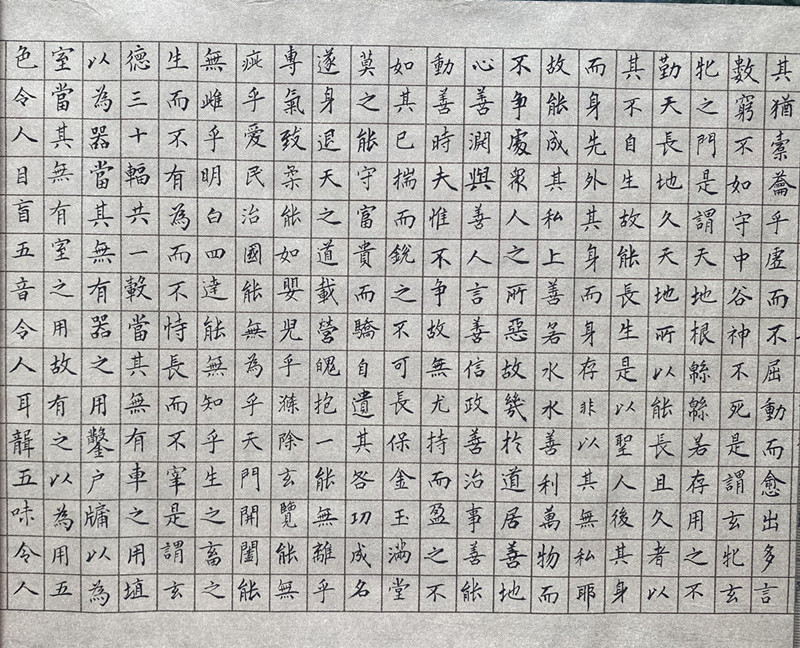 其猶橐籥乎虛而不屈動而愈出多言
數窮不如守中谷神不死是謂玄牝玄
牝之門是謂天地根緜緜若存用之不
勤天長地久天地所以能長且久者以
其不自生故能長生是以聖人後其身
而身先外其身而身存非以其無私耶
故能成其私上善若水水善利萬物而
不爭處眾人之所惡故幾於道居善地
心善淵與善人言善信政善治事善能
動善時夫惟不爭故無尤持而盈之不
如其已揣而銳之不可長保金玉滿堂
莫之能守富貴而驕自遺其咎功成名
遂身退天之道載營魄抱一能無離乎
專氣致柔能如嬰兒乎滌除玄覽能無
疵乎愛民治國能無為乎天門開闔能
無雌乎明白四達能無知乎生之畜之
生而不有為而不恃長而不宰是謂玄
德三十輻共一轂當其無有車之用埴
以為器當其無有器之用鑿户牖以為
室當其無有室之用故有之以為用五
色令人目盲五音令人耳聾五味令人